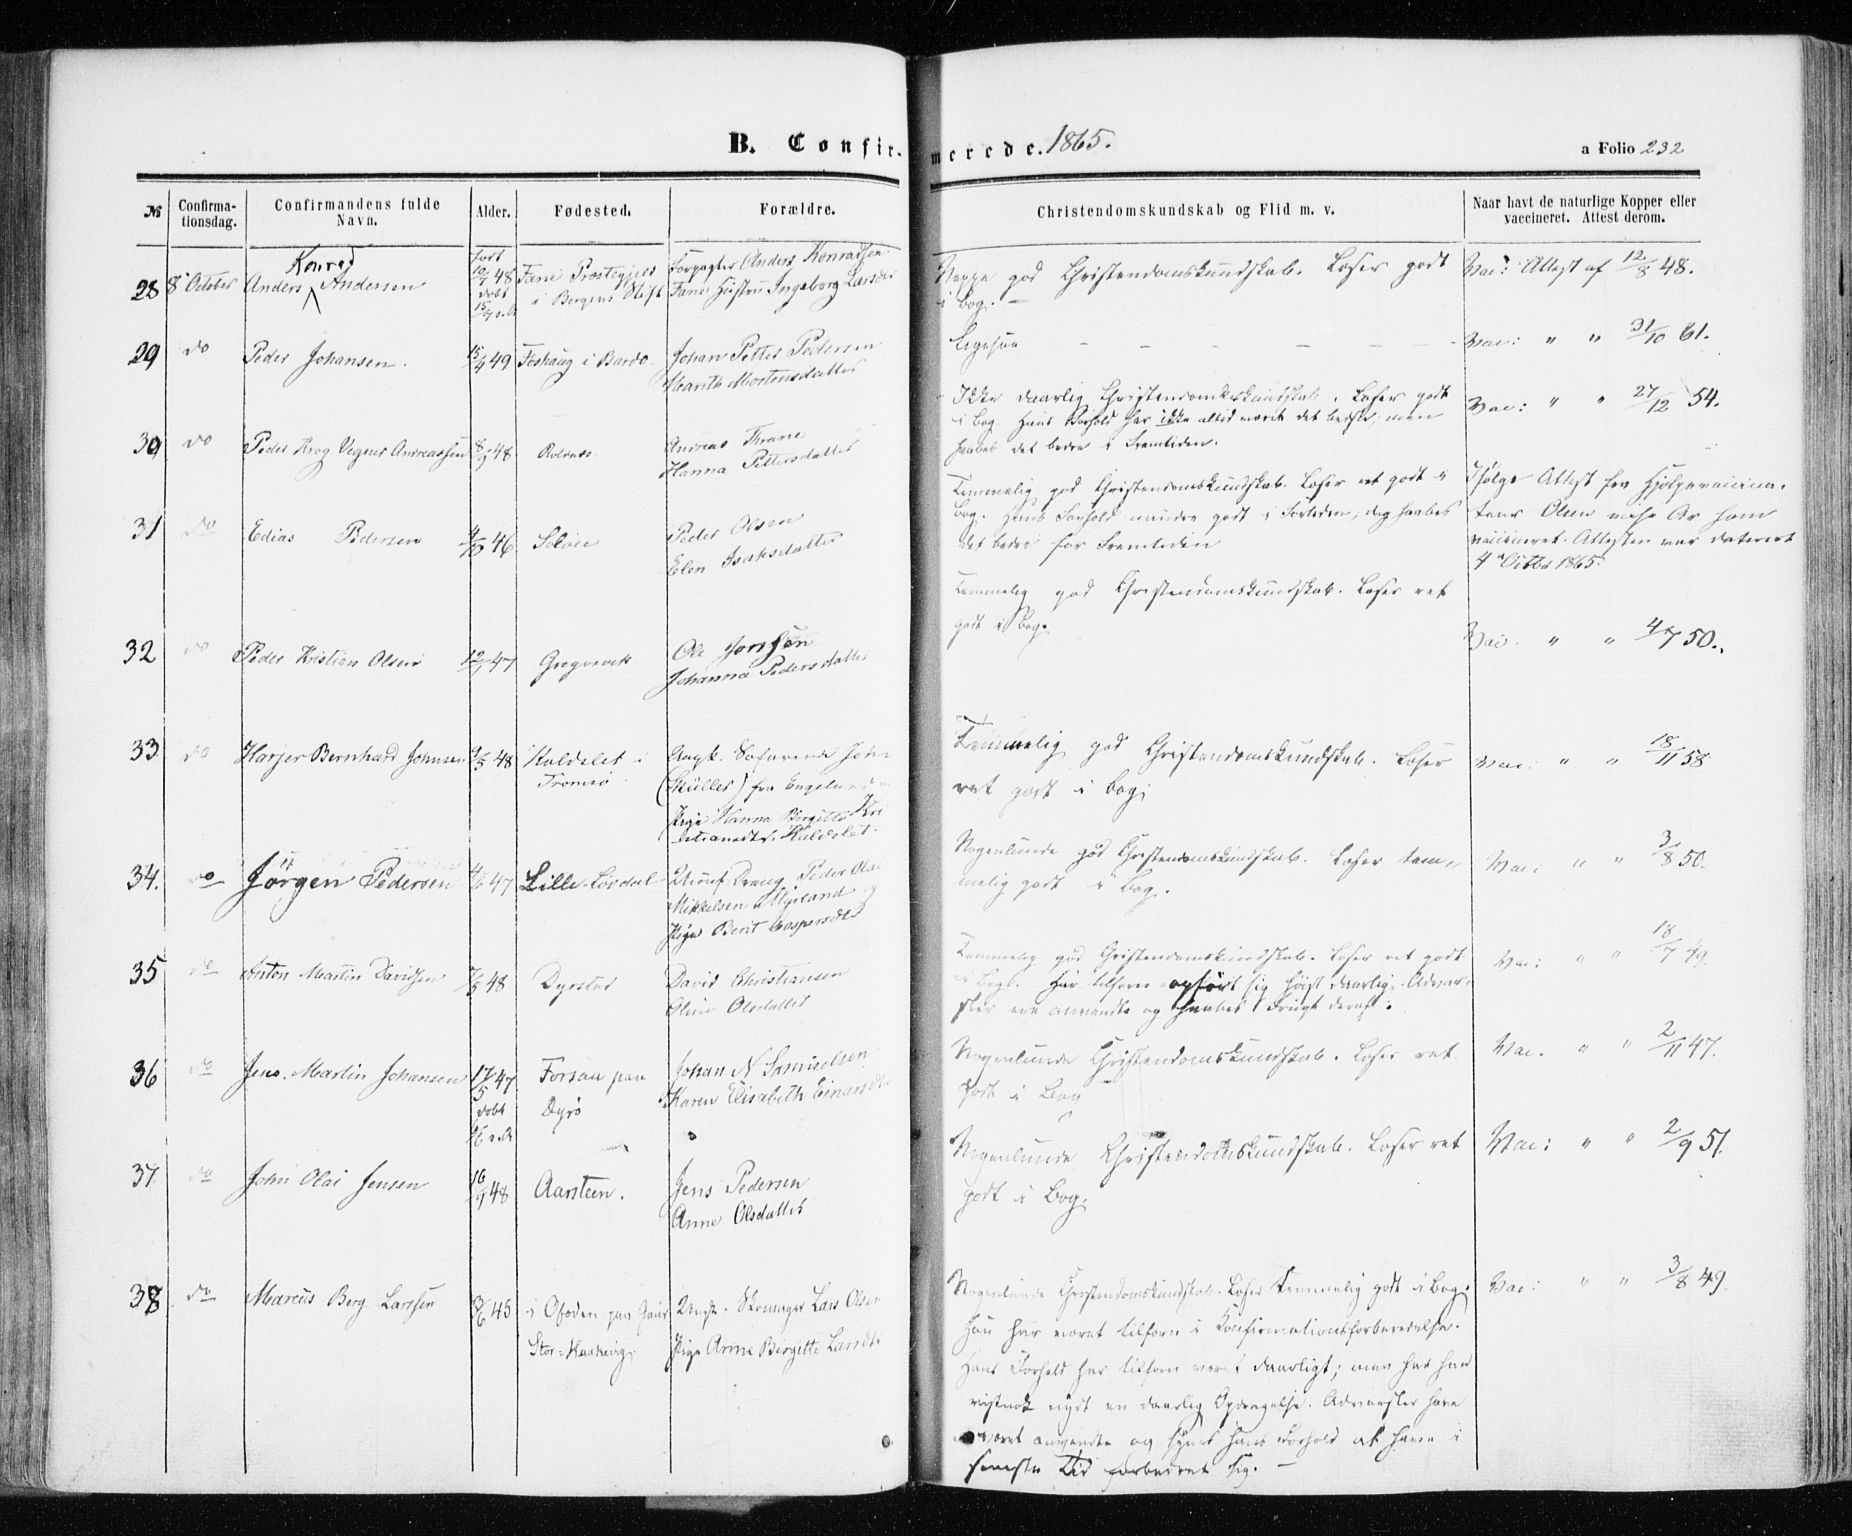 B. Confirmerede. 1865.
a Folio 232
№ Confirmationsdag. Confirmandens fulde Navn. Alder. Fødested. Forældre. Christendomskundskab og Flid m. v. Naar havt de naturlige Kopper eller vaccineret. Attest derom.
28 8 October Anders Konrad Andersen født 10/7 48 døbt 15/7 Fane Præstegjeld
i Bergens Stift Forpagter Anders Konradsen
Fane Hustru Ingeborg Larsdtr
Neppe god Christendomskundskab. Læser godt
i Bog. —
Vac: Attest af 12/8 48.
29 do Peder Johansen. 15/4 49 Foshaug i Bardo Johan Petter Pedersen
Marith Mortensdatter
Ligesaa — — — — —
Vac: " " 31/10 61.
30 do Peder Krog Vegner Andreassen 8/9 48 Andreas Thrane
Hanna Pettersdatter
Ikke daarlig Christendomskundskab. Læser godt
i Bog. Hans Forhold har ikke altid været det bedste, men
haabes det bedre i Fremtiden.
Vac: " " 27/12 54.
31 do Edias Pedersen 4/10 46 Soløen Peder Olsen
Elen Isaksdatter
Temmelig god Christendomskundskab. Læser ret godt i
Bog. Hans Forhold mindre godt i Fortiden, dog haabes
det bedre for Fremtiden
Ifølge Attest fra Hjelpevaccina-
teur Olsen er han
vaccineret. Attesten var dateret
4 Octbr 1865.
32 do Peder Kristian Olsen 12/1 47 Gregusvik Ole
Johanna Pedersdatter
Temmelig god Christendomskundskab. Læser ret
godt i Bog.
Vac. " " 4/7 50.
33 do Harjer Bernhard Johnsen 9/5 48 Kaldslet i
Tromsø Ungk. Søfarende John
(Skulles) fra England
Pige Hanna Birgitte Kri
stiansdtr. Kaldslet.
Temmelig god Christendomskundskab. Læser
ret godt i Bog.
Vac: " " 18/11 58
34. do Jørgen Pedersen 4/6 47 Lille-Løvdal Peder Olai
Mikkelsen Myrland og
Pige Berit Caspersdtr
Nogenlunde god Christendomskundskab. Læser tem-
melig godt i Bog.
Vac: " " 3/8 50.
35 do Anton Martin Davidsen 7/5 48 Dyrstad David Christiansen
Oline Olsdatter
Temmelig god Christendomskundskab. Læser ret godt
i Bog. Har tilforn opført sig høist daarlig. Advar-
sler ere anvendte og haabes Frugt deraf.
Vac: " " 18/7 49.
36 do Jens Martin Johansen 17/5 47 døbt Forsaa paa
Dyrø Johan N Samuelsen
Karen Elisabeth Einarsdtr
Nogenlunde Christendomskundskab. Læser ret
godt i Bog
Vac. " " 2/11 47.
37 do John Olai Jensen 48 Aarsteen. Jens Pedersen
Anne Olsdatter
Nogenlunde Christendomskundskab. Læser ret
godt i Bog.
Vac: " " 2/9 51.
38 do Marcus Berg Larssen 45 i Ofoden paa
Ungk. Skomager Lars Olsen
Pige Anne Birgitte Larsdtr
Nogenlunde Christendomskundskab. Læser temmelig godt i Bog.
Han har været tilforn i Konfirmationsforberedelse.
Hans Forhold har tilforn været daarligt; men har han
vistnok nydt en daarlig Opdragelse. Advarsler have
været anvendte og synes hans Forhold at have i
seneste Tid forbedret sig. —
Vac: " " 3/8 49.